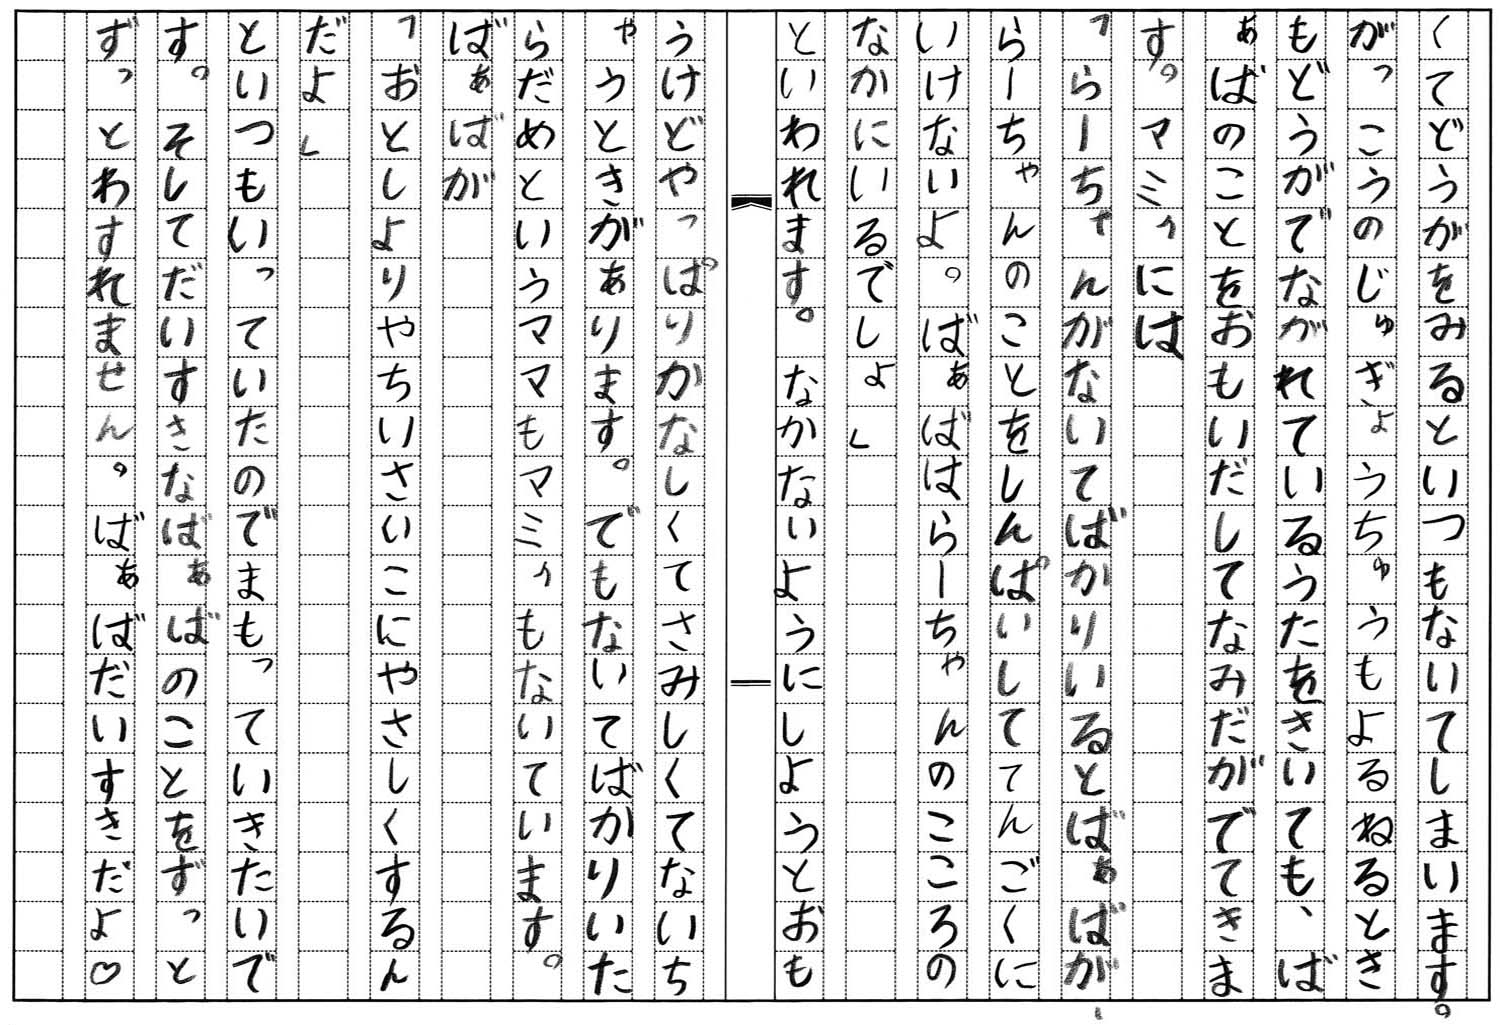 くてどうがをみるといつもないてしまいます。
がっこうのじゅぎょうちゅうもよるねるとき
もどうがでながれているうたをきいても、ば
ぁばのことをおもいだしてなみだがでてきま
す。マミぅには
「らーちゃんがないてばかりいるとばぁばが、
らーちゃんのことをしんぱいしててんごくに
いけないよ。ばぁばはらーちゃんのこころの
なかにいるでしょ」
といわれます。なかないようにしようとおも
うけどやっぱりかなしくてさみしくてないち
ゃうときがぁります。でもないてばかりいた
らだめというママもマミぅもないています。
ばぁばが
「おとしよりやちいさいこにやさしくするん
だよ」
といつもいっていたのでまもっていきたいで
す。そしてだいすきなばぁばのことをずっと
ずっとわすれません。ばぁばだいすきだよ♡